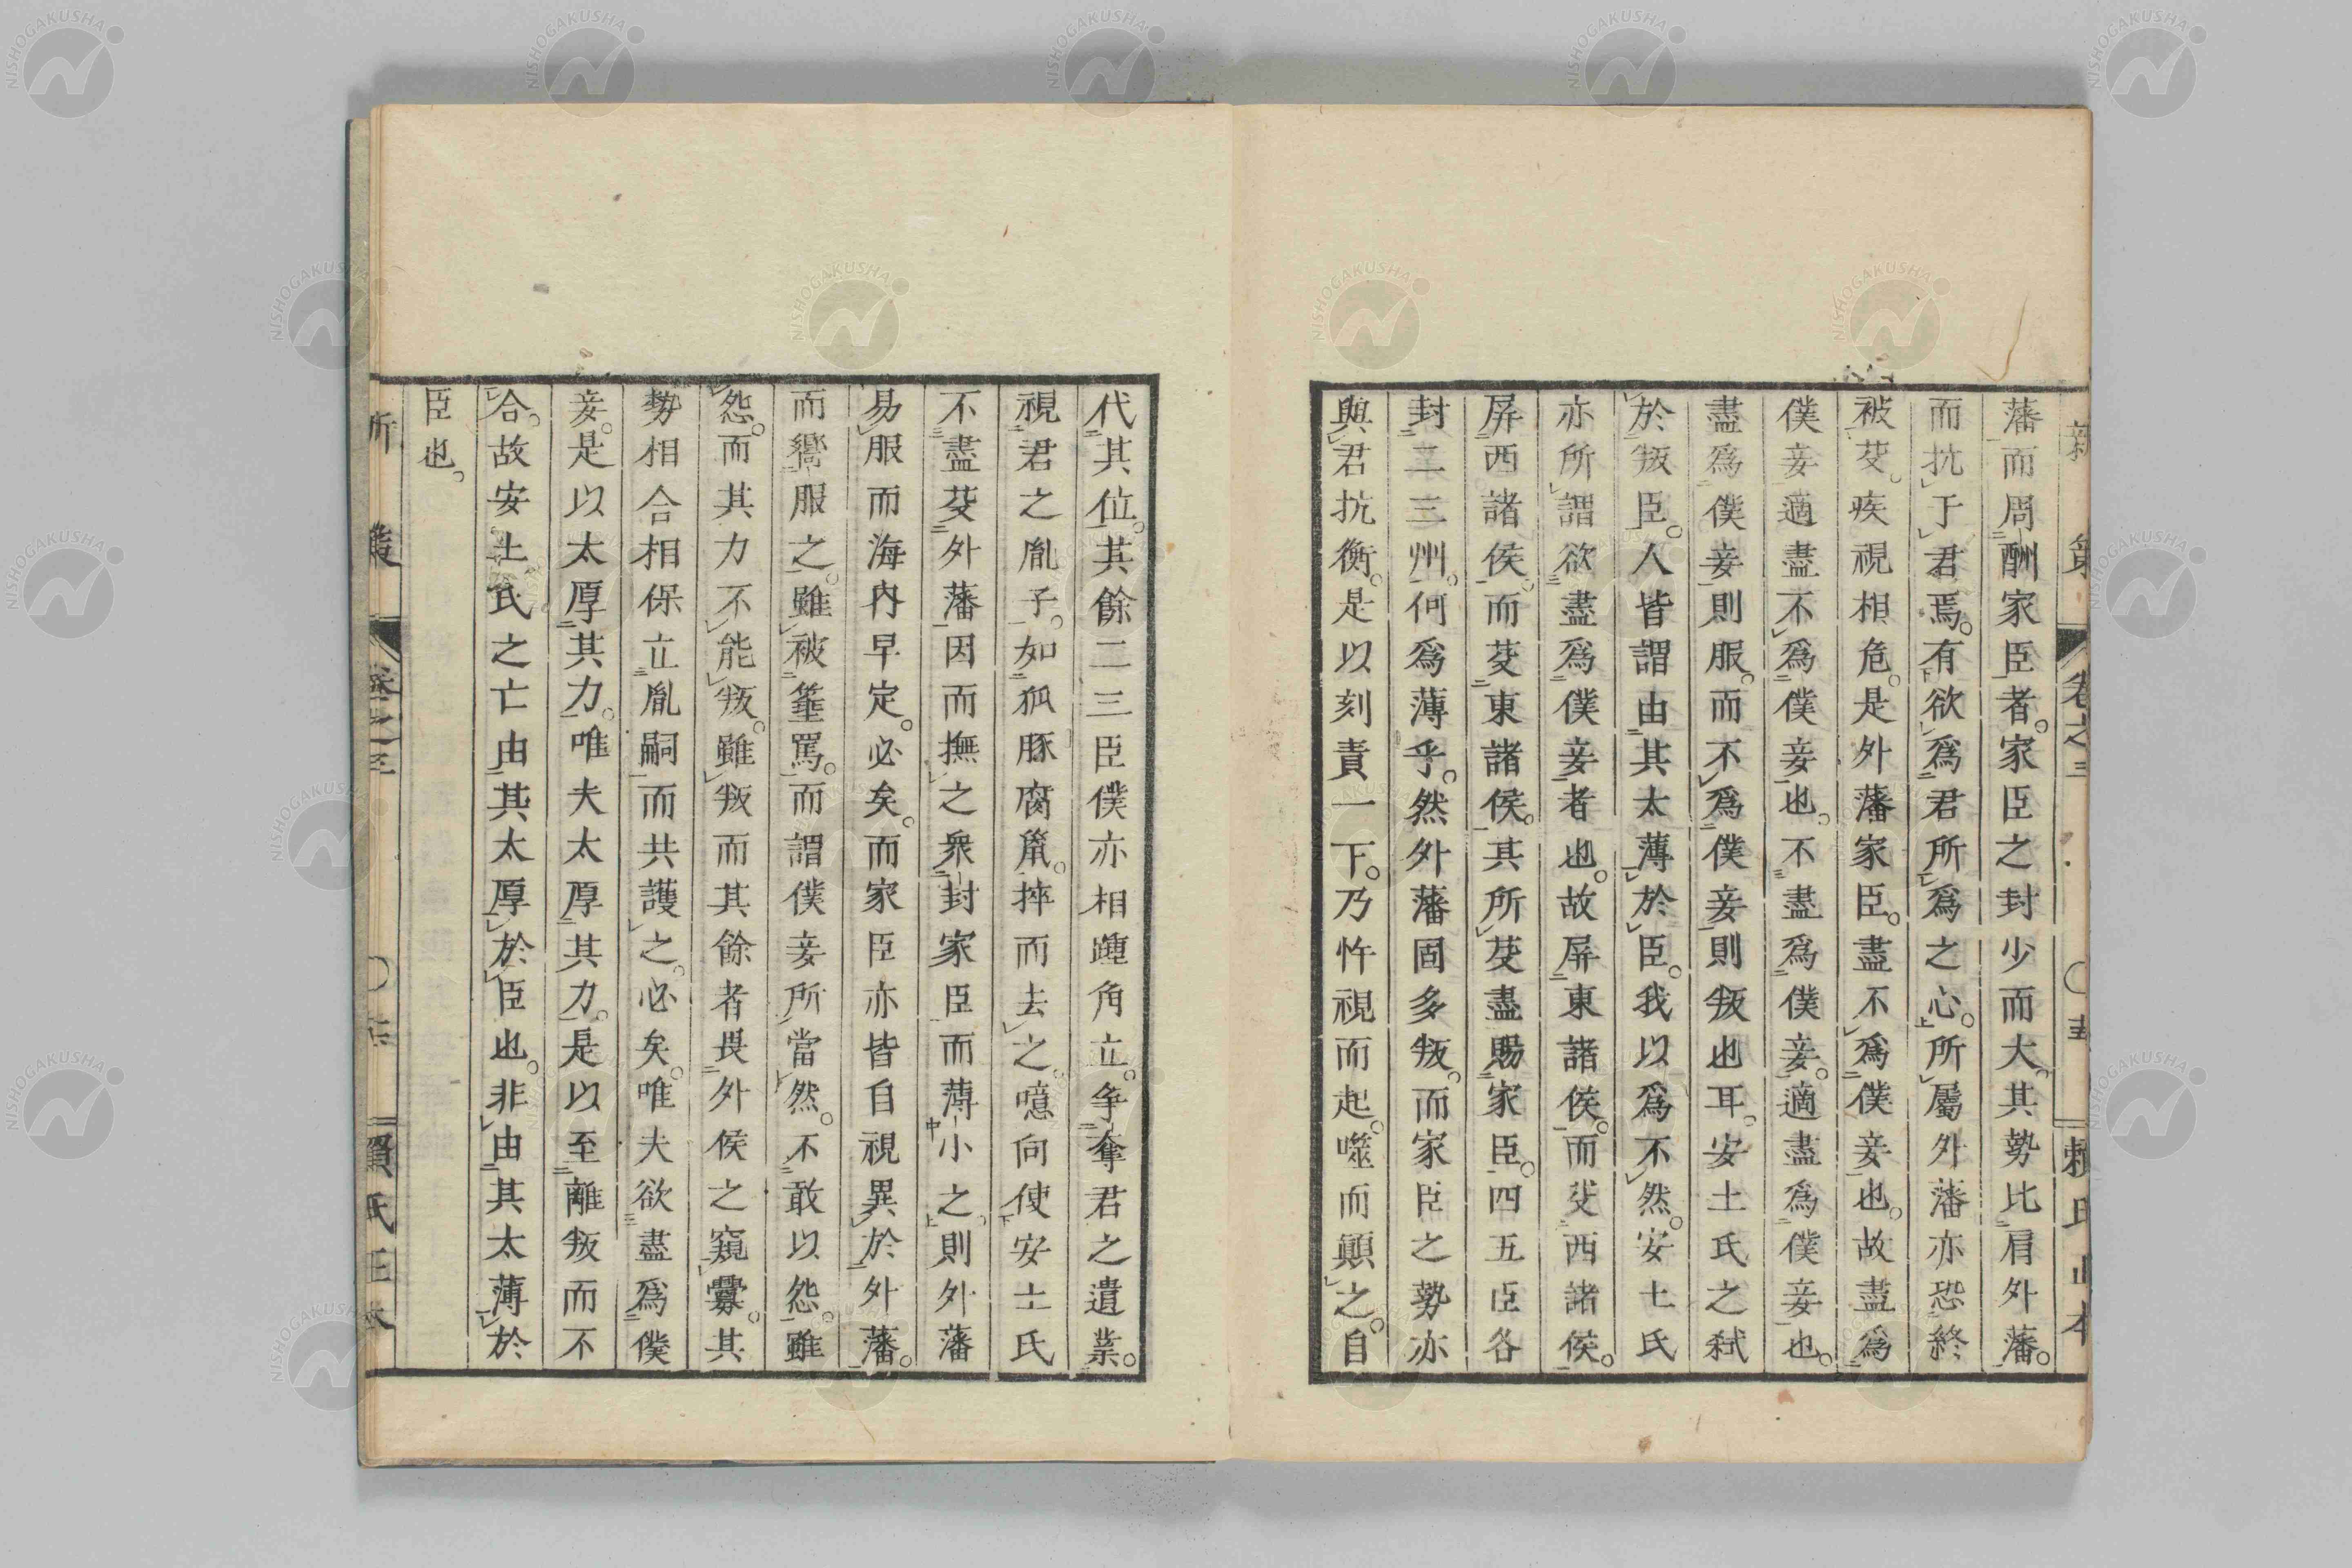 藩而周酬家臣者。家臣之封少而大。其勢比肩外藩。
而抗于君焉。有欲爲君所爲之心。所屬外藩亦恐終
被芟。疾視相危。是外藩家臣。盡不爲僕妾也。故盡爲
僕妾。適盡不爲僕妾也。不盡爲僕妾。適盡爲僕妾也。
盡爲僕妾則服。而不爲僕妾則叛也耳。安土氏之弑
於叛臣。人皆謂由其太薄於臣。我以爲不然。安土氏
亦所謂欲盡爲僕妾者也。故屏東諸侯。而芟西諸侯。
屏西諸侯。而芟東諸侯。其所芟盡賜家臣。四五臣各
封二三州。何爲薄乎。然外藩固多叛。而家臣之勢亦
與君抗衡。是以刻責一下。乃忤視而起。噬而顚之。自
代其位。其餘二三臣僕亦相踵角立。争奪君之遺業。
視君之胤子。如狐豚腐鼠。捽而去之。噫向使安土氏
不盡芟外藩因而撫之衆封家臣而薄小之。則外藩
易服而海内早定。必矣。而家臣亦皆自視異於外藩。
而嚮服之。雖被箠罵。而謂僕妾所當然。不敢以怨。雖
怨。而其力不能叛。雖叛而其餘者畏外侯之窺釁。其
勢相合相保立胤嗣而共護之。必矣。唯夫欲盡爲僕
妾。是以太厚其力。唯夫太厚其力。是以至離叛而不
合。故安土氏之亡由其太厚於臣也。非由其太薄於
臣也。
卷之三
NISHOGAKUSHA